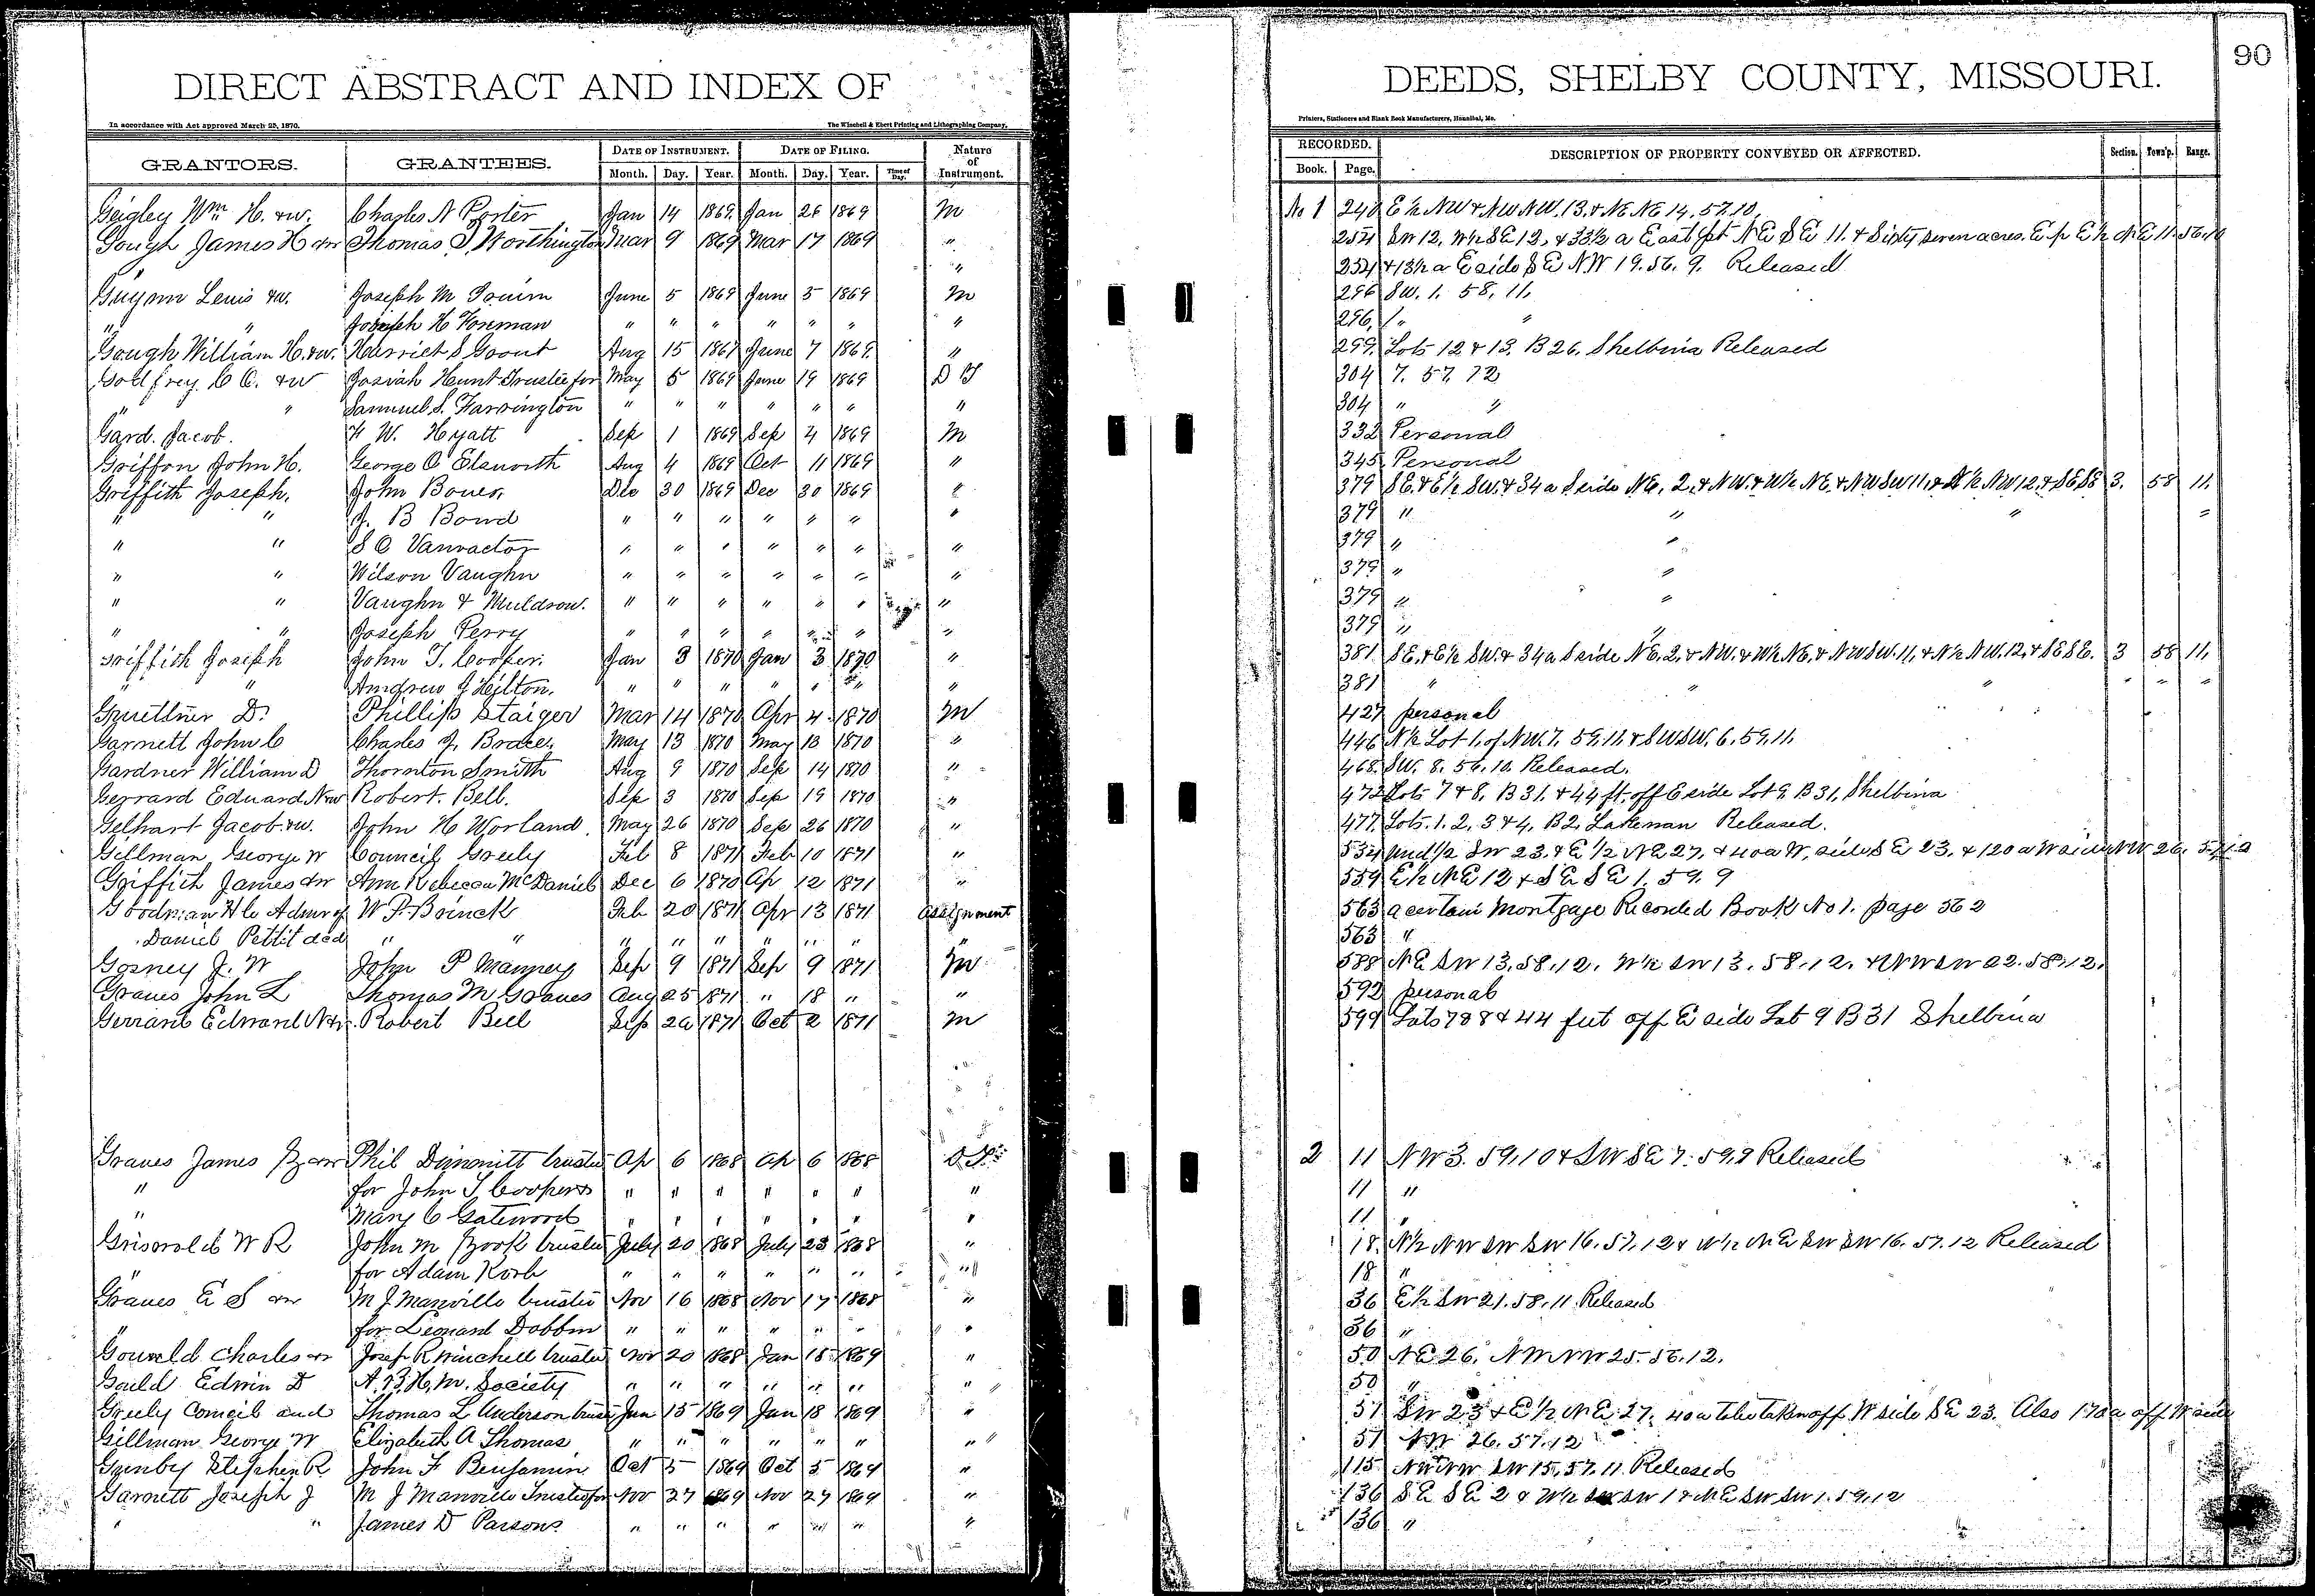 DIRECT ABSTRACT AND INDEX OF
In accordance with Act approved March 25, 1870. The Winchell & Ebert Printing and Lithographing Company,
GRANTORS. GRANTEES. DATE OF INSTRUMENT. DATE OF FILING. Nature of Instrument.
Month. Day. Year. Month. Day. Year. Time of Day.
Geigley Wm H. &w. Charles N Porter Jan 14 1869. Jan 26 1869 M
Gough James H &w Thomas J. Worthington Mar 9 1869 Mar 17 1869 "
"
Guynn Lewis &w. Joseph M June 5 1869 June 5 1869 M
" " Joseph H Foreman " " " " " " "
Gough William H. &w. Harriet S Grout Aug 15 1867 June 7 1869. "
Godfrey. C C. &w Josiah Hunt Trustee for May 5 1869 June 19 1869 D T
" " Samuel S. Farrington " " " " " " "
Gard. Jacob. F W. Hyatt Sep 1 1869 Sep 4 1869 M
Griffon John H. George O Elsworth Aug 4 1869 Oct 11 1869 "
Griffith Joseph. John Bower Dec 30 1869 Dec 30 1869 "
" " J. B Bond " " " " " " "
" " S C Vanvactor " " " " " " "
" " Wilson Vaughn " " " " " " "
" " Vaughn & Muldrow. " " " " " " "
" " Joseph Perry " " " " " " "
Griffith Joseph John T. Cooper. Jan 3 1870 Jan 3 1870 "
" " Andrew J Hilton. " " " " " " "
Guettner D. Phillip Staiger Mar 14 1870 Apr 4 1870 M
Garnett John C Charles J. Brace. May 13 1870 May 13 1870 "
Gardner William D Thornton Smith Aug 9 1870 Sep 14 1870 "
Gerrard Edward N &w Robert. Bell. Sep 3 1870 Sep 19 1870 "
Gelhart Jacob. &w. John H Worland. May 26 1870 Sep 26 1870 "
Gillman George W Council Greely Feb 8 1871 Feb 10 1871 "
Griffith James &w Ann Rebecca McDaniel Dec 6 1870 Ap 12 1871 "
Goodman H C Admr of W P. Boinck Feb 20 1871 Apr 13 1871 assignment
Daniel Pettit dcd " " " " " " " " "
Gosney J. W John P Manney Sep 9 1871 Sep 9 1871 M
Graves John L Thomas M Graves Aug 25 1871 " 18 " "
Gerrard Edward N &w. Robert Bell Sep 20 1871 Oct 2 1871 M
Graves James &w Phil Dimmitt trustee Ap 6 1868 Ap 6 1868 D T
" for John T. Coopers " " " " " " "
" Mary C Gatewood " " " " " " "
Griswold W R John M Book trustee July 20 1868 July 23 1868 "
" for Adam Korb " " " " " " "
Graves E S &w M J Manville trustee Nov 16 1868 Nov 17 1868 "
" for Leonard Dobbin " " " " " " "
Gould Charles &w Josep R Winchell trustee Nov 20 1868 Jan 18 1869 "
Gould Edwin D A. B. H. M. Society " " " " " " "
Greely Council and Thomas L Anderson trustee Jan 15 1869 Jan 18 1869 "
Gillman George W Elizabeth A Thomas " " " " " " "
Gunby Stephen R John F Benjamin Oct 5 1869 Oct 5 1869 "
Garnett Joseph J M J Manville Trustee for Nov 27 1869 Nov 27 1869 "
" " James D Parsons " " " " " " "
DEEDS, SHELBY COUNTY, MISSOURI. 90
Printers, Stationers and Blank Book Manufacturers, Hannibal, Mo.
RECORDED. DESCRIPTION OF PROPERTY CONVEYED OR AFFECTED. Section. Town'p. Range.
Book. Page.
No 1 240 E½ NW & NW NW. 13. & NE NE 14. 57. 10.
254 SW 12, W½ SE 12, & 33½ a East pt NE SE 11. & Sixty seven acres. E. p E½ NE 11. 56. 10
254 & 13½ a E side SE NW 19. 56. 9. Released
296 SW. 1. 58. 11.
296, " "
299. Lots 12 & 13. B 26. Shelbina Released
304 7. 57. 12
304 " "
332 Personal
345. Personal
379 SE. & E½ SW. & 34 a S side NE. 2, & NW. & W½ NE. & NW SW 11, & N½ NW 12, & SE SE 3. 58 11.
379 " " " "
379 " "
379 " "
379 " "
379 " "
381. SE. & E½ SW. & 34 a S side NE. 2, & NW. & W½ NE. & NW SW. 11, & N½ NW. 12, & SE SE. 3 58 11.
381 " " " " " "
427 personal
446 N½ Lot 1, of NW. 7. 59. 11. & SW SW. 6. 59. 11.
468. SW. 8. 56. 10. Released.
472 Lots 7 & 8, B 31, & 44 ft. off E side Lot 9. B 31, Shelbina
477. Lots. 1. 2, 3 & 4, B 2, Lakenan Released.
534 und ½ SW 23. & E ½ NE 27, & 40 a W. side SE 23. & 120 a W side NW 26. 57. 12
559 E½ NE 12 & SE SE 1. 59. 9
563 a certain Mortgage Recorded Book No 1. page 562
563 "
588 NE SW 13. 58. 12. W½ SW 13. 58. 12. & NW SW 22. 58. 12.
592 personal
599 Lots 7 & 8 & 44 feet off E side Lot 9 B 31 Shelbina
2 11 NW 3. 59. 10 & SW SE 7. 59. 9 Released
11 "
11 "
18. N½ NW SW SW 16. 57. 12 & W½ NE SW SW 16. 57. 12 Released
18 "
36 E½ SW 21. 58. 11 Released
36 "
50 NE 26. NW NW 25. 56. 12.
50 "
51 SW 23 & E ½ NE 27. 40 a to be taken off W side SE 23. Also 120 a off W side
51 NW 26. 57. 12
115 NW NW SW 15. 57. 11 Released
136 SE SE 2 & W½ SW SW 1 & NE SW SW 1. 59. 12
136 "